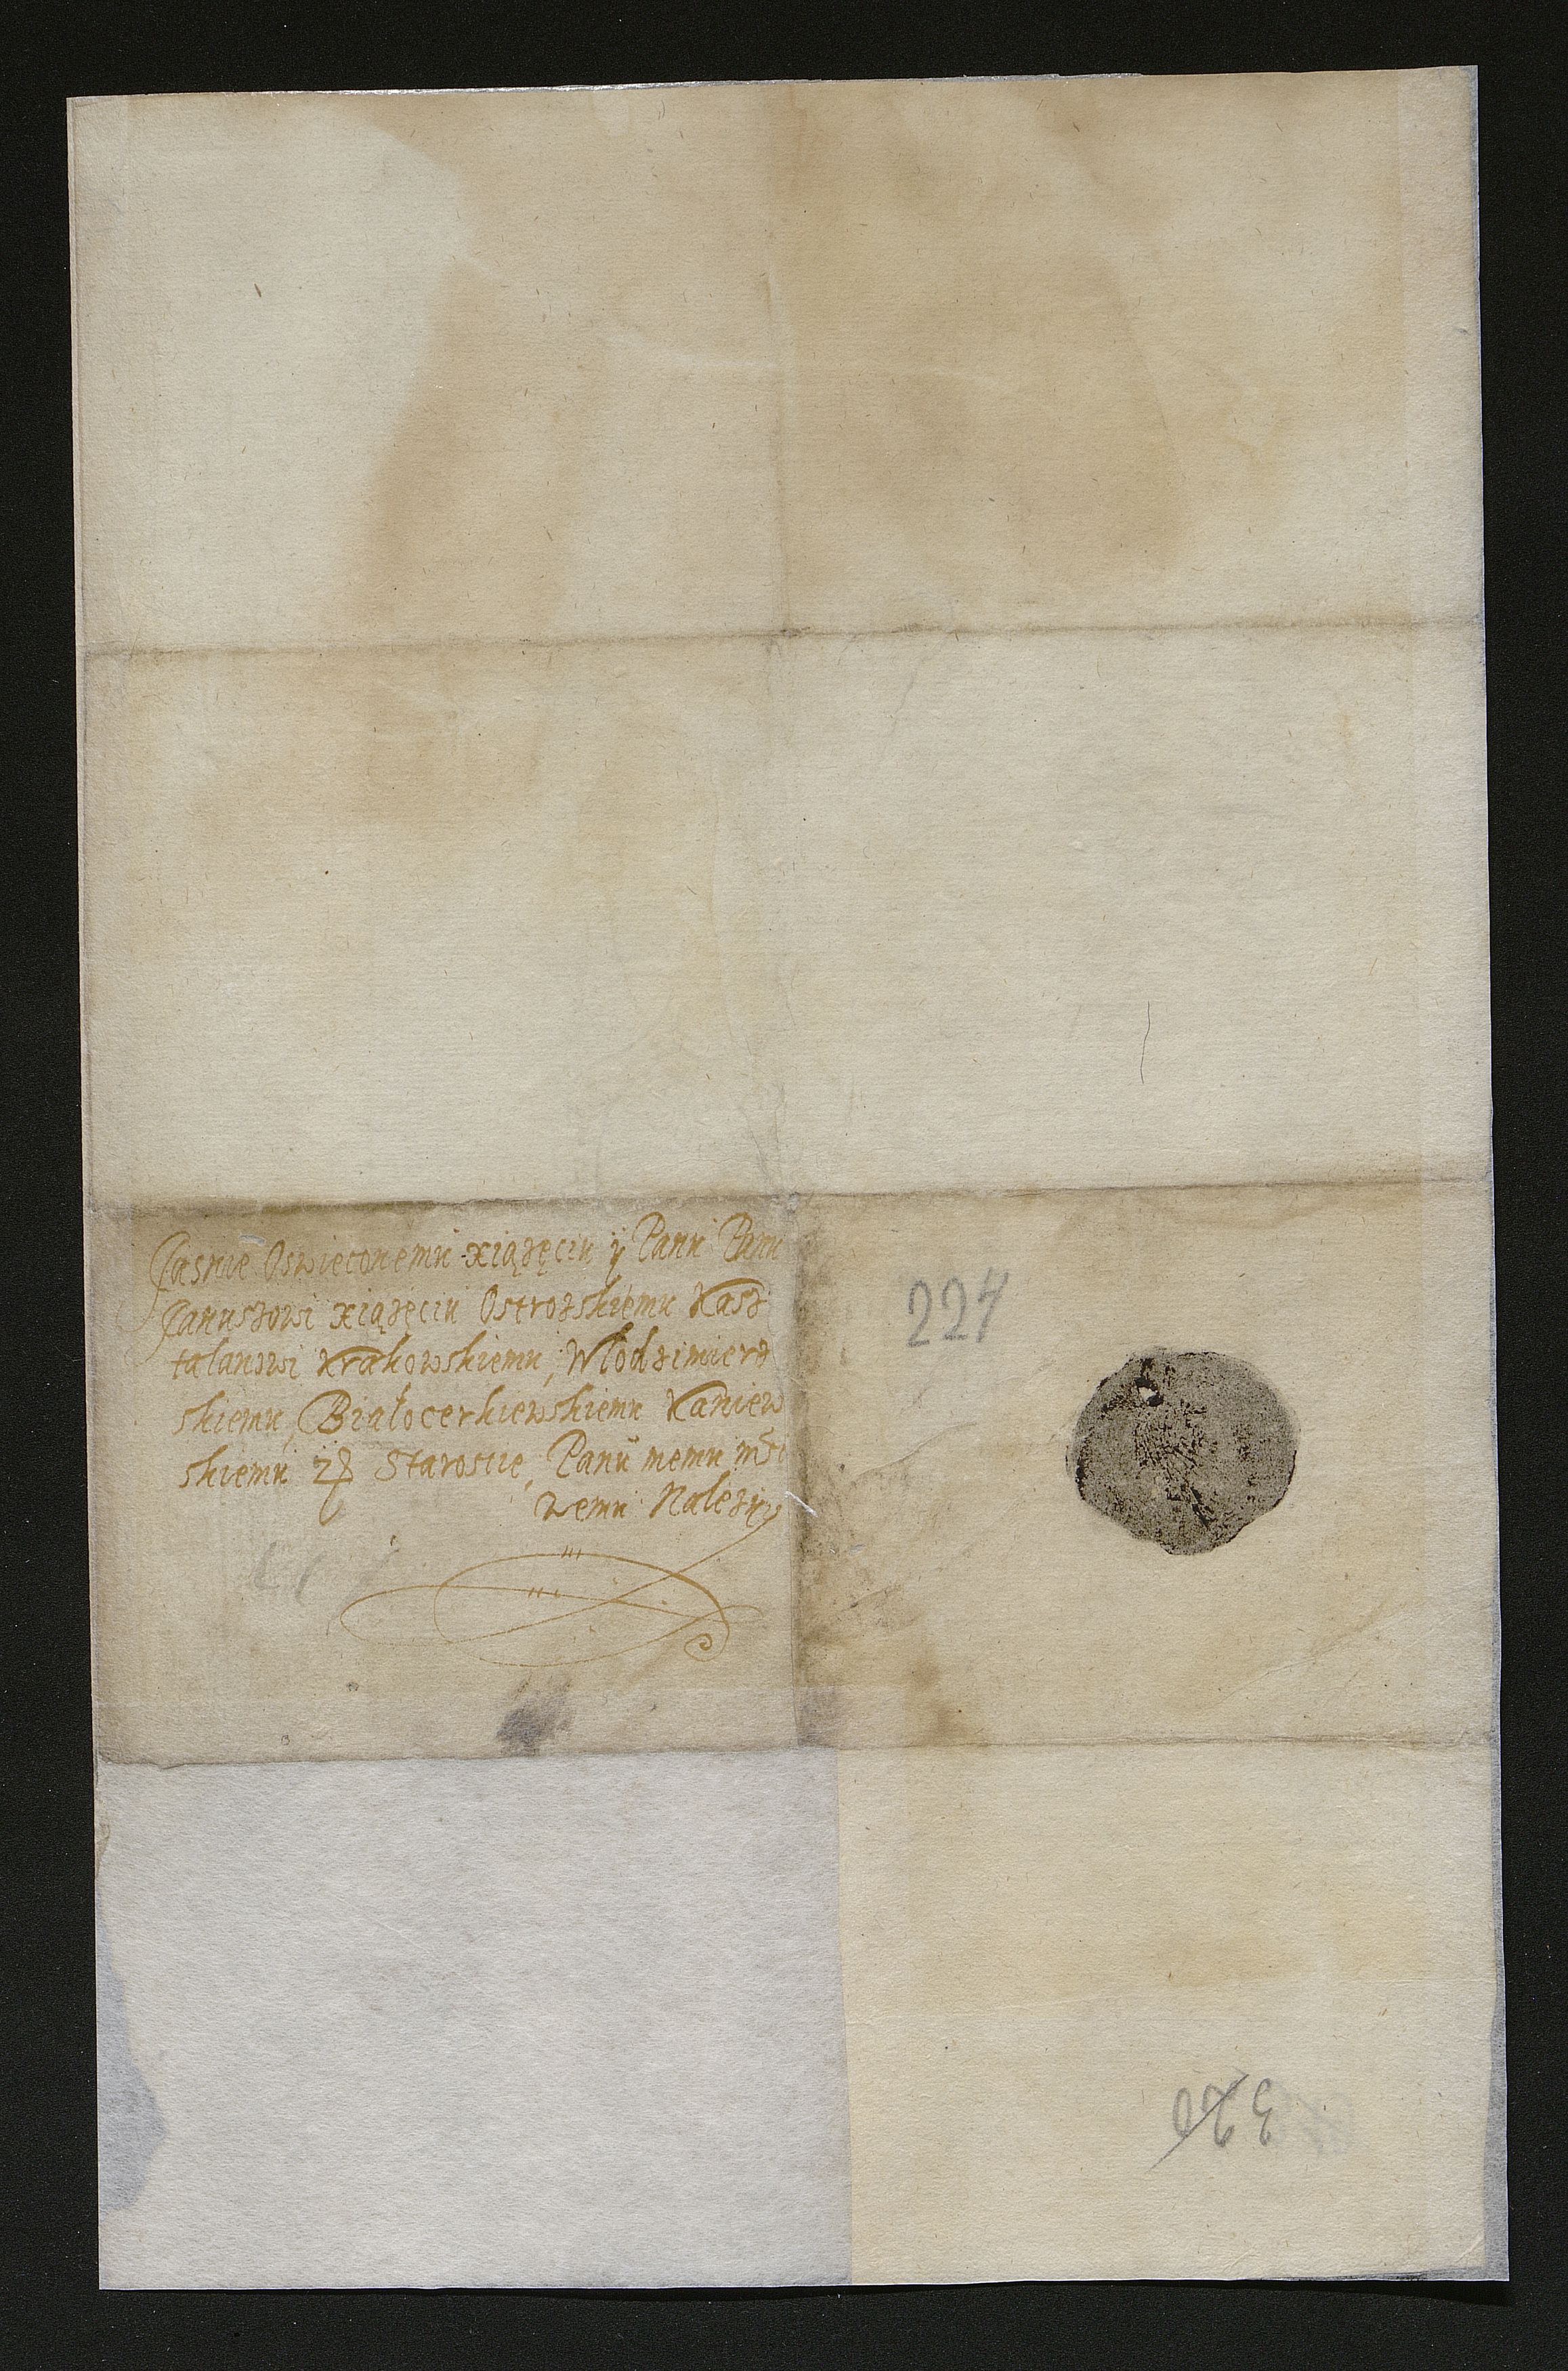 Jasnie Oswieconemu xiążęciu ÿ Panu Panu
Januszowi xiążęciu Ostrozskiemu Kasz
talanowi Krakowskiemu, Włodzimierz
skiemu, Białocerkiewskiemu Kaniew
skiemu Staroscie, Panu memu
wemu Należy
224
320